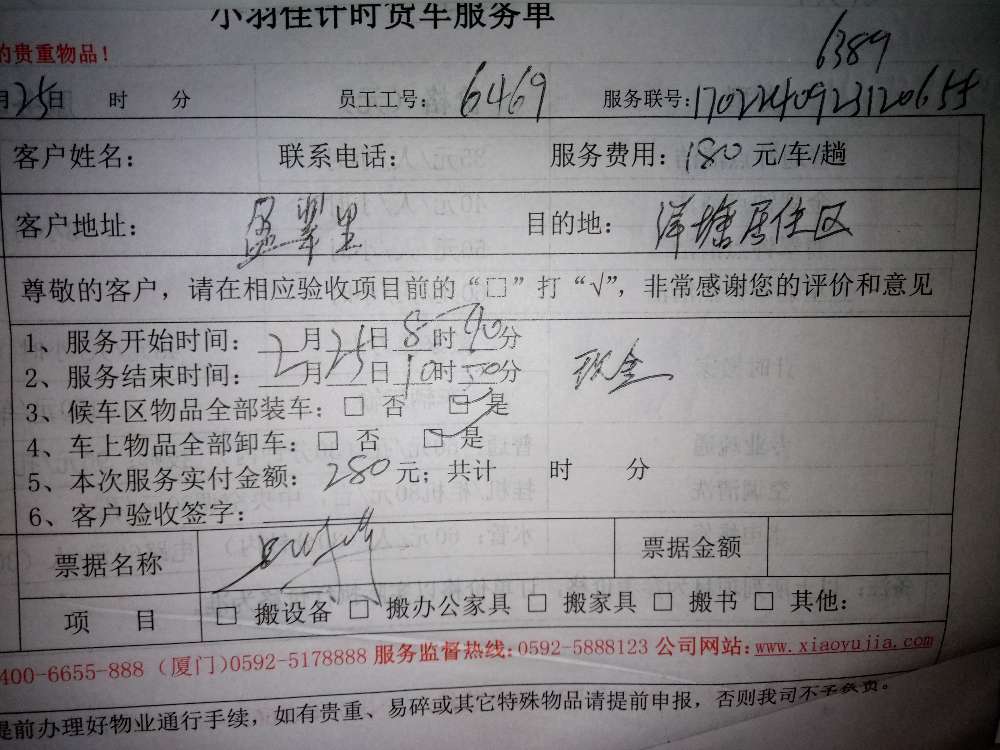 小羽佳计时货车服务单
的贵重物品！
6389
月25日 时 分 员工工号：6469 服务联号：1702240923120655
客户姓名： 联系电话： 服务费用：180 元/车/趟
客户地址：盈翠里 目的地：洋塘居住区
尊敬的客户，请在相应验收项目前的“□”打“√”，非常感谢您的评价和意见
1、服务开始时间：2月25日8时40分
2、服务结束时间：2月25日10时50分 现金
3、候车区物品全部装车：□ 否 □ 是
4、车上物品全部卸车：□ 否 □ 是
5、本次服务实付金额：280元；共计 时 分
6、客户验收签字：
票据名称 票据金额
项 目 □ 搬设备 □ 搬办公家具 □ 搬家具 □ 搬书 □ 其他：
400-6655-888（厦门）0592-5178888 服务监督热线：0592-5888123 公司网站：www.xiaoyujia.com
提前办理好物业通行手续，如有贵重、易碎或其它特殊物品请提前申报，否则我司不予负责。